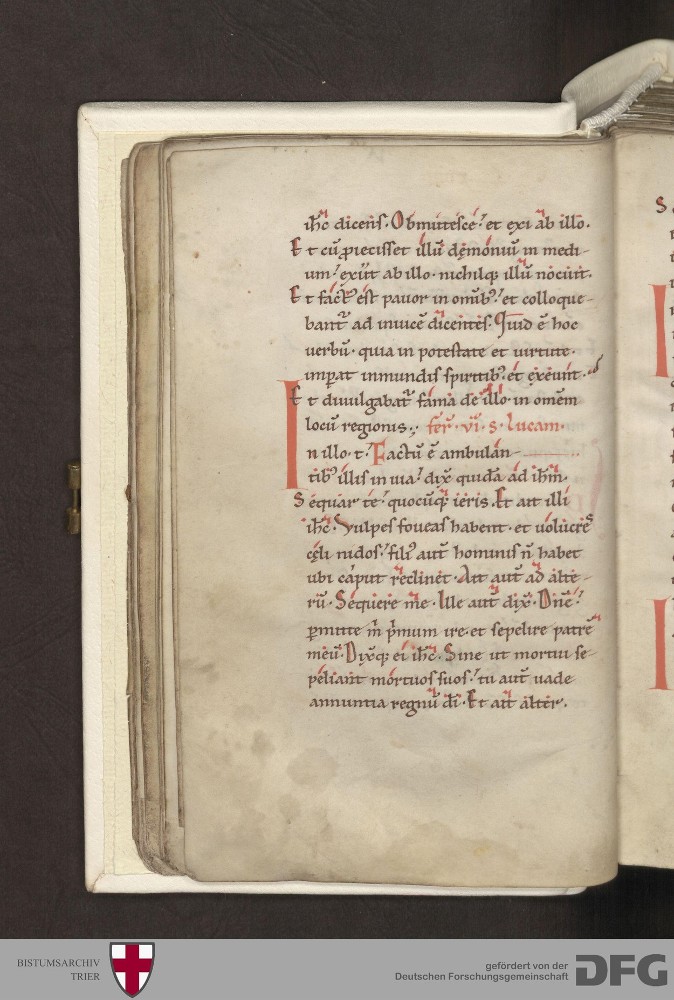 ih̄c dicens. Obmutesce! et exi ab illo.
Et cū ꝓiecisset illū dęmoniū in medi-
um! exiit ab illo. nichilqꝫ illū nocuit.
Et fact᷒ est pauor in omib᷒! et colloque-
bant᷑ ad inuicē dicentes. Quid ē hoc
uerbū. quia in potestate et uirtute.
imꝑat inmundis spiritib᷒! et exeunt.
Et diuulgabat᷑ fama de illo in omem
locū regionis. fer̄. vi. s. lucam.
In illo. t. Factū ē ambulan-
tib᷒ illis in uia! dix̄ quidā ad ih̄m.
Sequar te! quocūqꝫ ieris. Et ait illi
ih̄c. Vulpes foueas habent. et uolucres
cęli nidos! fili᷒ aut̄ hominis n̄ habet
ubi caput reclinet. Ait aut̄ ad alte-
rū. Sequere me. Ille aut̄ dix̄. Dn̄e!
ꝑmitte m̄ p̄mum ire. et sepelire patrē
meū. Dixqꝫ ei ih̄c. Sine ut mortui se-
peliant mortuos suos! tu aut̄ uade
annuntia regnū dī. Et ait alter.
S
BISTUMSARCHIV
TRIER
gefördert von der
Deutschen Forschungsgemeinschaft
DFG